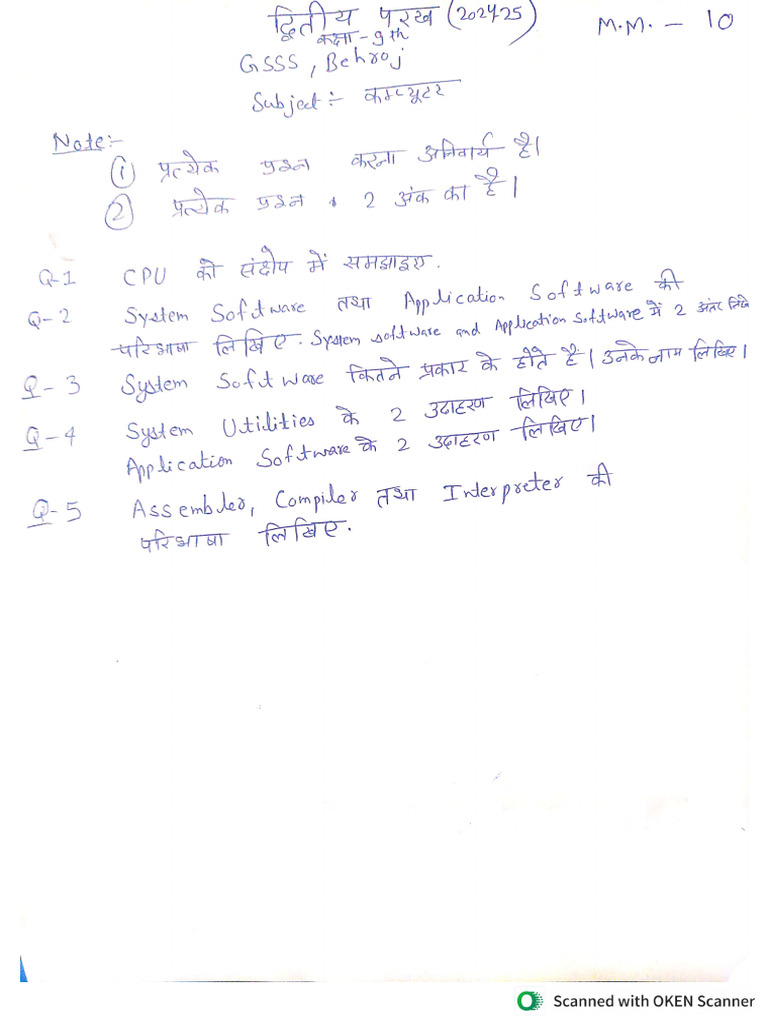 द्वितीय परख (2024-25)
M.M. - 10
कक्षा - 9th
GSSS, Behroj
Subject :- कम्प्यूटर
Note:-
① प्रत्येक प्रश्न करना अनिवार्य है।
② प्रत्येक प्रश्न 2 अंक का है।
Q-1 CPU को संक्षेप में समझाइए.
Q-2 System Software तथा Application Software की
परिभाषा लिखिए. System software and Application Software में 2 अंतर लिखे
Q-3 System Software कितने प्रकार के होते है। उनके नाम लिखिए।
Q-4 System Utilities के 2 उदाहरण लिखिए।
Application Software के 2 उदाहरण लिखिए।
Q-5 Assembler, Compiler तथा Interpreter की
परिभाषा लिखिए.
Scanned with OKEN Scanner